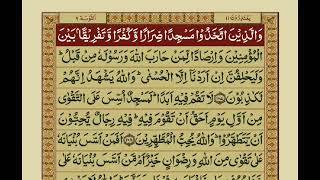 التوبة ٩
يعتذرون ١١
وَالَّذِيْنَ اتَّخَذُوْا مَسْجِدًا ضِرَارًا وَّكُفْرًا وَّتَفْرِيْقًۢا بَيْنَ
الْمُؤْمِنِيْنَ وَاِرْصَادًا لِّمَنْ حَارَبَ اللّٰهَ وَرَسُوْلَهٗ مِنْ قَبْلُ ؕ
وَلَيَحْلِفُنَّ اِنْ اَرَدْنَاۤ اِلَّا الْحُسْنٰى ؕ وَاللّٰهُ يَشْهَدُ اِنَّهُمْ
لَكٰذِبُوْنَ لَا تَقُمْ فِيْهِ اَبَدًا ؕ لَمَسْجِدٌ اُسِّسَ عَلَى التَّقْوٰى
مِنْ اَوَّلِ يَوْمٍ اَحَقُّ اَنْ تَقُوْمَ فِيْهِ ؕ فِيْهِ رِجَالٌ يُّحِبُّوْنَ
اَنْ يَّتَطَهَّرُوْا ؕ وَاللّٰهُ يُحِبُّ الْمُطَّهِّرِيْنَ اَفَمَنْ اَسَّسَ بُنْيَانَهٗ
عَلٰى تَقْوٰى مِنَ اللّٰهِ وَرِضْوَانٍ خَيْرٌ اَمْ مَّنْ اَسَّسَ بُنْيَانَهٗ عَلٰى